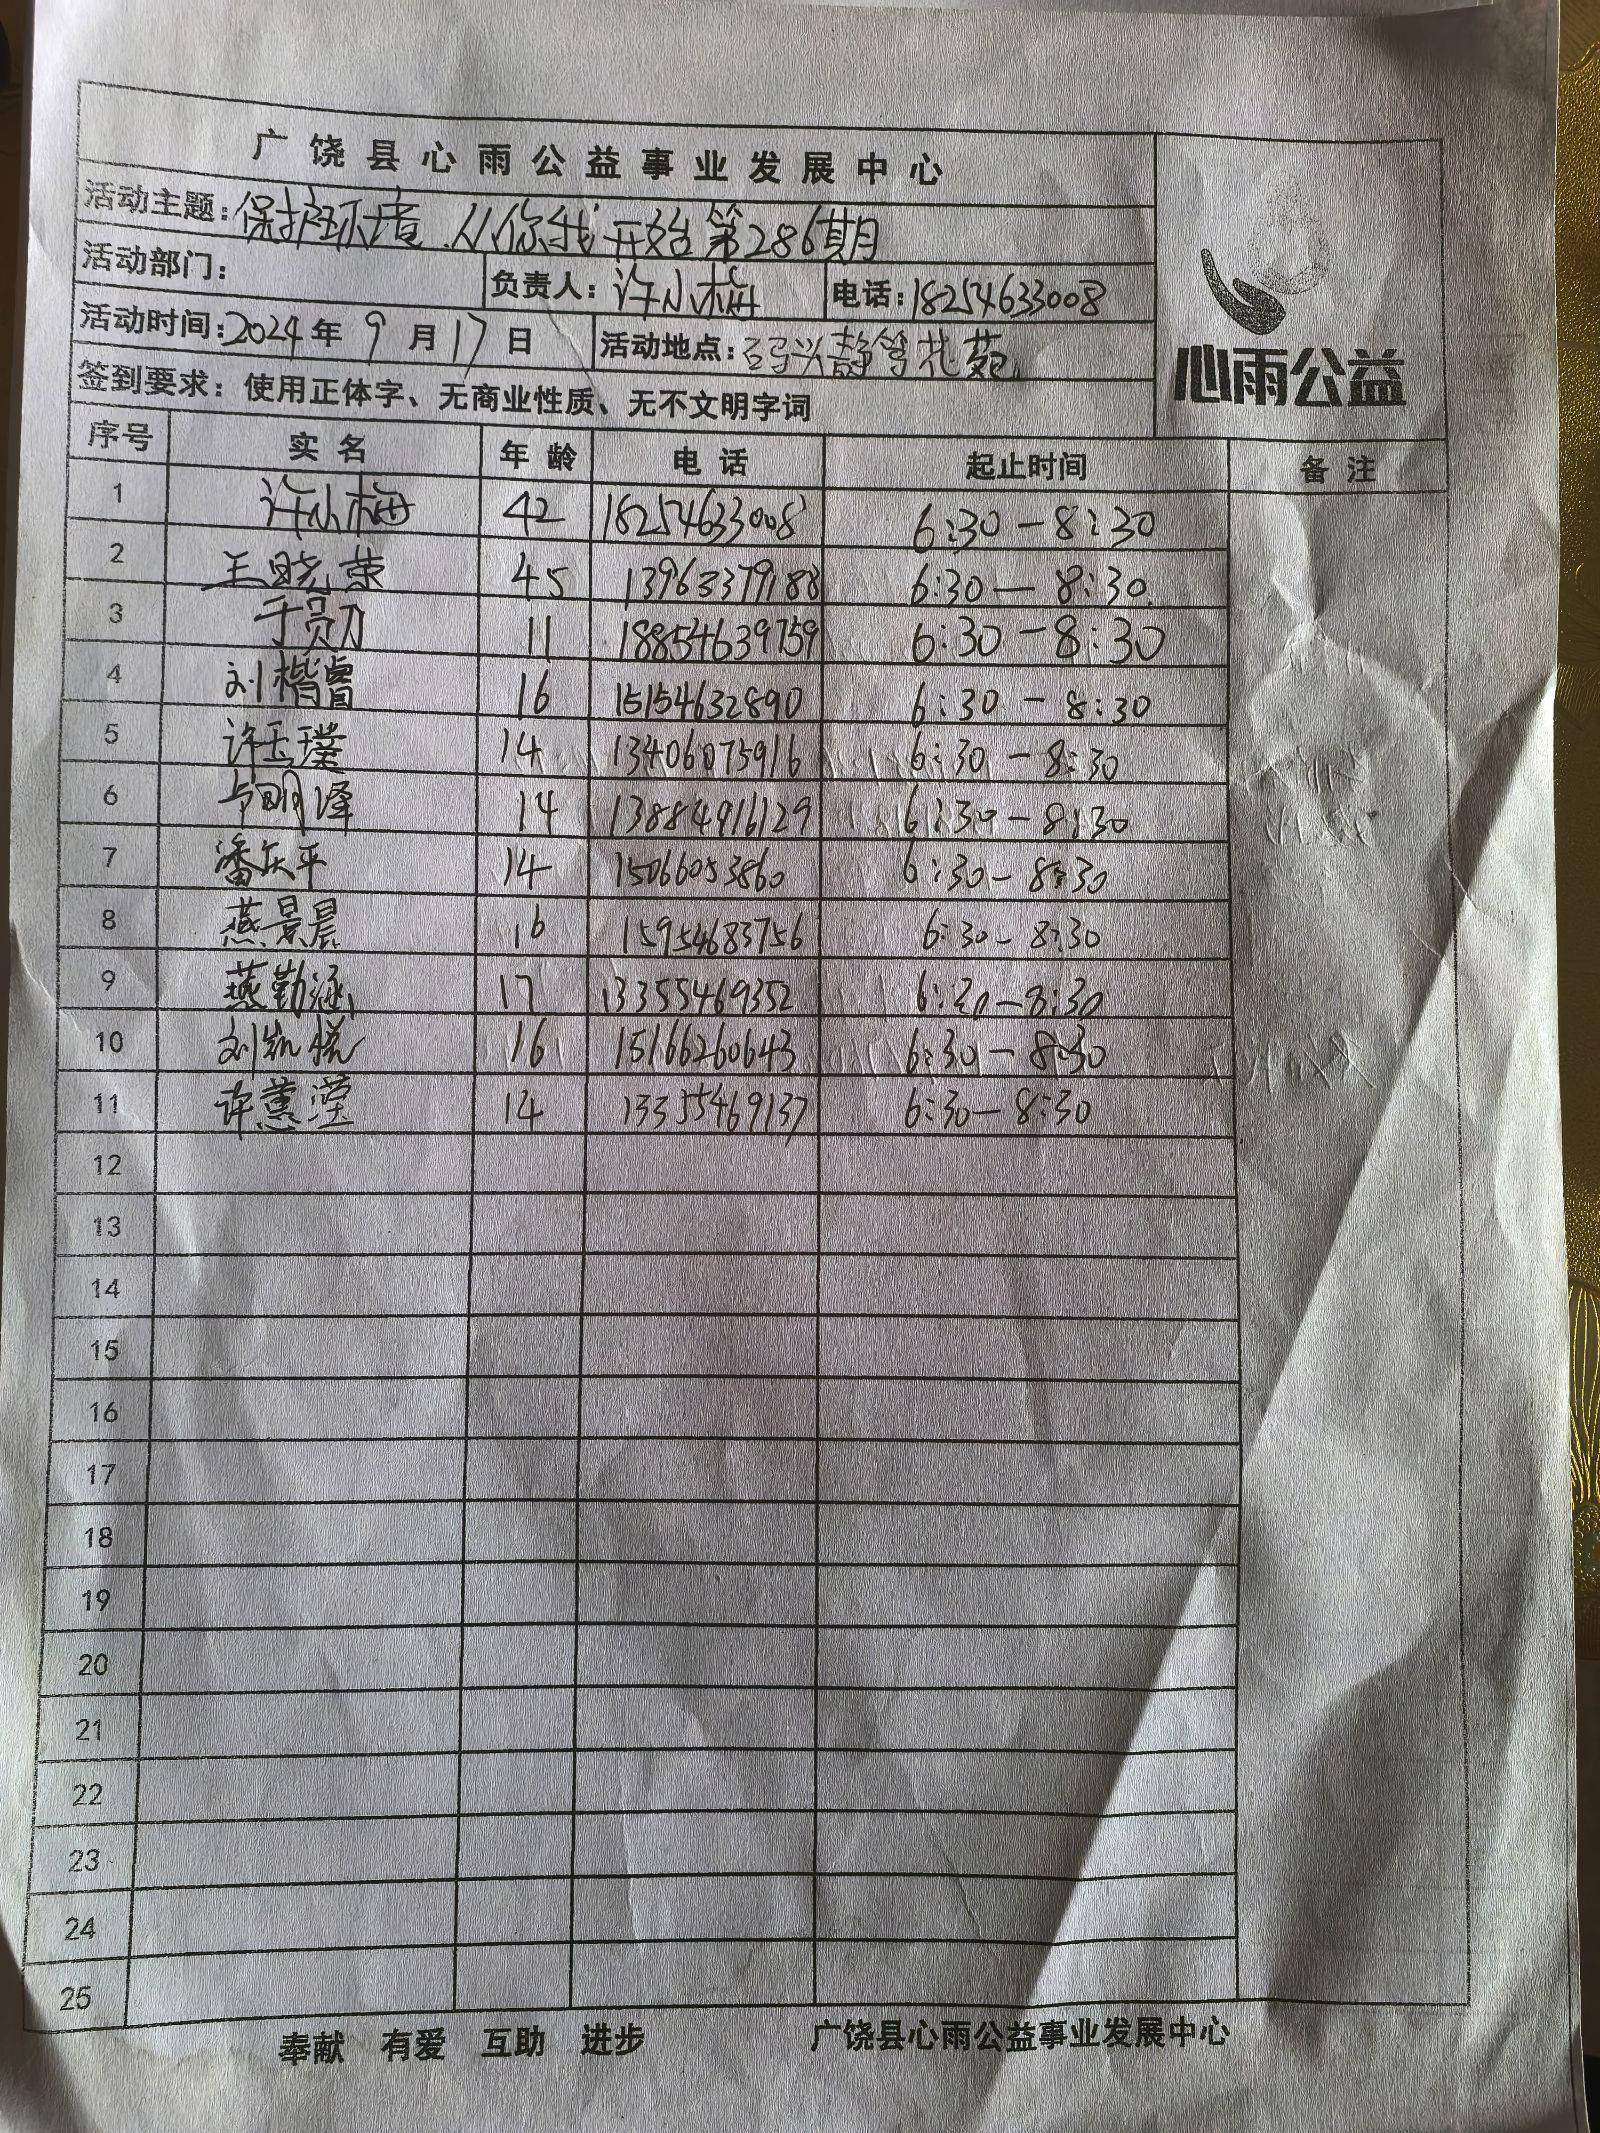 广饶县心雨公益事业发展中心
活动主题:保护环境、从你我开始第286期
活动部门: 负责人:许小梅 电话:18254633008
活动时间:2024年9月17日 活动地点:花苑
签到要求:使用正体字、无商业性质、无不文明字词
心雨公益
序号 实名 年龄 电话 起止时间 备注
1 许小梅 42 18254633008 6:30-8:30
2 王晓荣 45 13963379188 6:30-8:30
3 于员力 11 18854639759 6:30-8:30
4 刘楷睿 16 15154632890 6:30-8:30
5 许玉璞 14 13406075916 6:30-8:30
6 明泽 14 13884916129 6:30-8:30
7 潘庆平 14 15066053860 6:30-8:30
8 燕景晨 16 15954683756 6:30-8:30
9 燕勤涵 17 13355469352 6:30-8:30
10 刘凯悦 16 15166260643 6:30-8:30
11 许蕙滢 14 13355469137 6:30-8:30
12
13
14
15
16
17
18
19
20
21
22
23
24
25
奉献 有爱 互助 进步 广饶县心雨公益事业发展中心